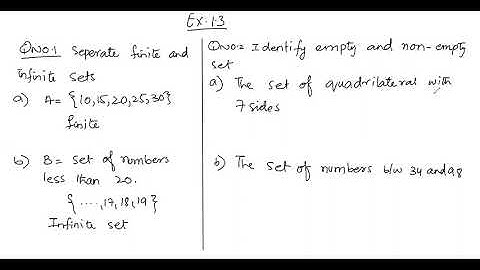 Ex.1.3
QNO.1 Seperate finite and
Infinite sets
a) A= {10,15,20,25,30}
finite
b) B= Set of numbers
less than 20.
{....,17,18,19}
Infinite set
QNO.2 Identify empty and non-empty
set
a) The set of quadrilateral with
7 sides
b) The set of numbers b/w 34 and 98